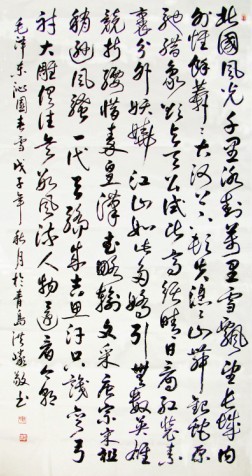 北国风光千里冰封万里雪飘望长城内
外惟餘莽莽大河上下顿失滔滔山舞银蛇原
驰蜡象欲与天公试比高须晴日看红装素
裹分外妖娆江山如此多娇引無数英雄
竞折腰惜秦皇漢武略输文采唐宗宋祖
稍逊风骚一代天骄成吉思汗只识弯弓
射大雕俱往矣数风流人物还看今朝
毛泽东沁园春雪戊子年秋月於青岛洪敬书